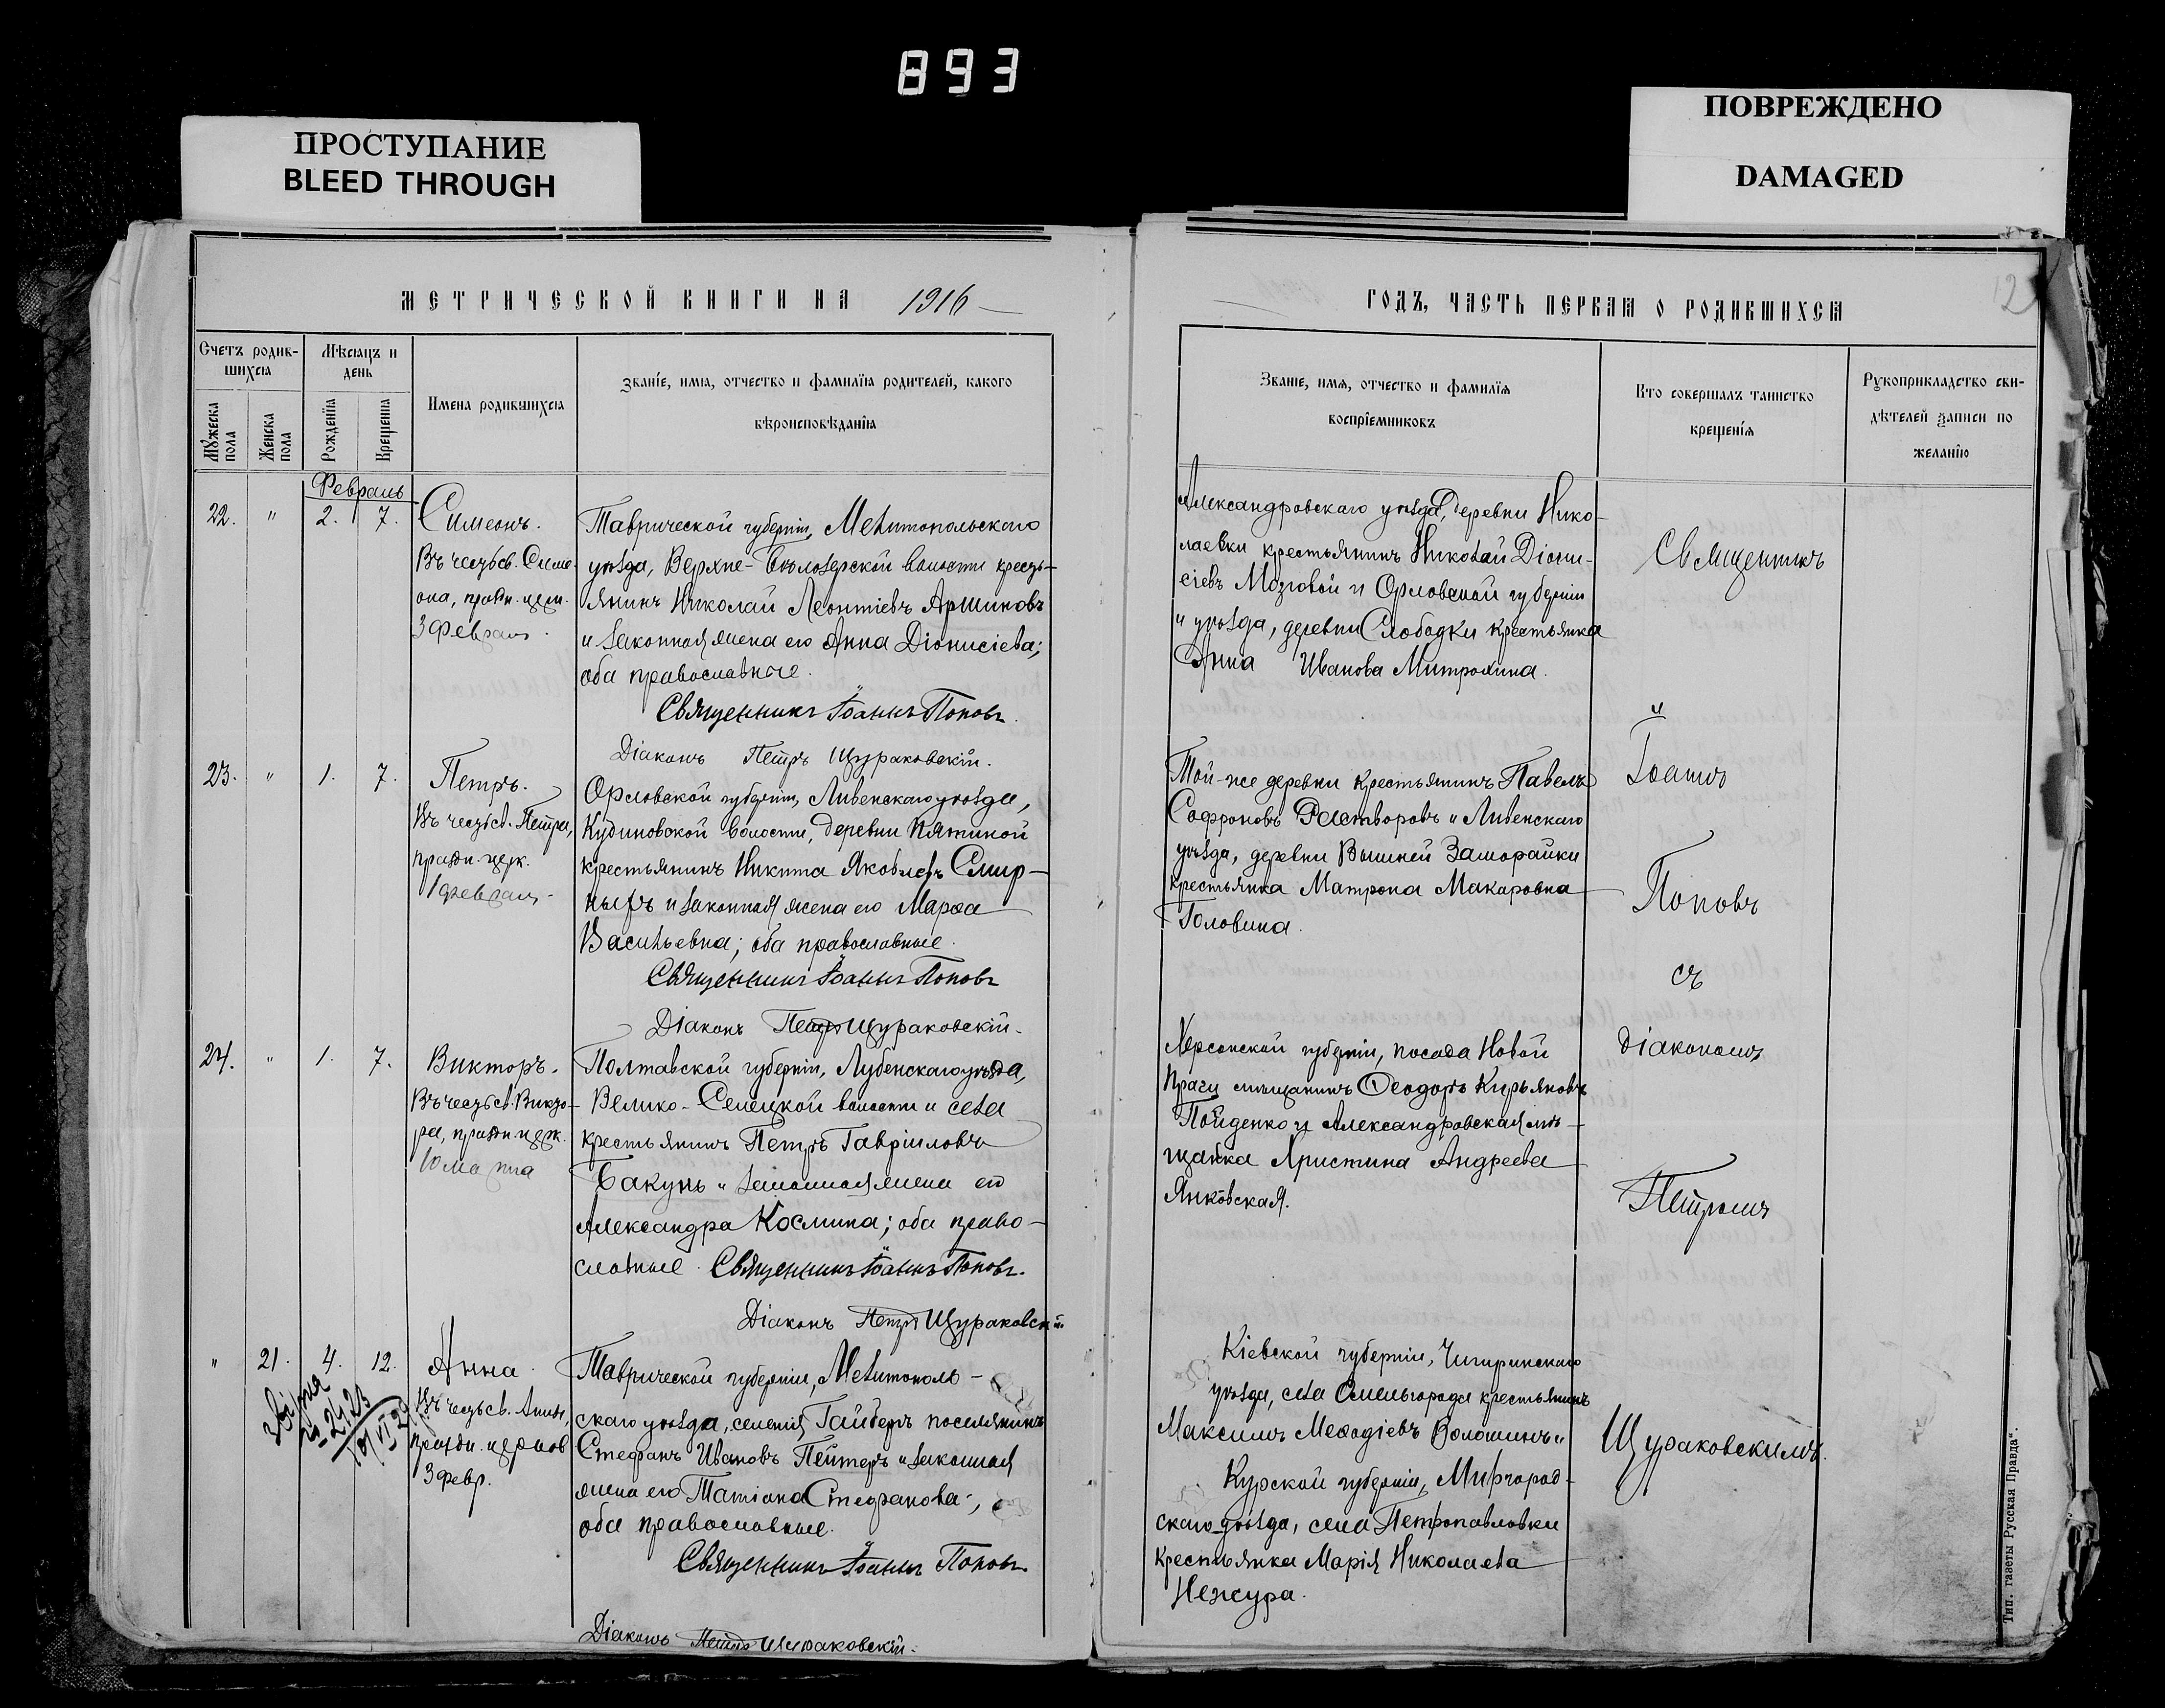 893
ПРОСТУПАНИЕ
BLEED THROUGH
ПОВРЕЖДЕНО
DAMAGED
МЕТРИЧЕСКОЙ КНИГИ НА 1916
Счетъ родив-
шихся
Мѣсяцъ и
день
Имена родившихся
Званіе, имя, отчество и фамилія родителей, какого
вѣроисповѣданія
Мужеска
пола
Женска
пола
Рожденія
Крещенія
Февраль
22. " 2. 7. Симеонъ.
Въ честь св. Симе-
она, праздн. церк.
3 февраля.
Таврической губерніи, Мелитопольскаго
уѣзда, Верхне-Бѣлозерской волости кресть-
янинъ Николай Леонтіевъ Аршиновъ
и законная жена его Анна Діонисіева;
оба православные.
Священникъ Іоаннъ Поповъ.
Діаконъ Петръ Щураковскій.
23. " 1. 7. Петръ.
Въ честь св. Петра,
праздн. церк.
1 февраля.
Орловской губерніи, Ливенскаго уѣзда,
Кудиновской волости, деревни Пятиной
крестьянинъ Никита Яковлевъ Смир-
ныхъ и законная жена его Марѳа
Васильевна; оба православные.
Священникъ Іоаннъ Поповъ
Діаконъ Петръ Щураковскій.
24. " 1. 7. Викторъ.
Въ честь св. Викто-
ра, праздн. церк.
10 марта
Полтавской губерніи, Лубенскаго уѣзда,
Велико-Селецкой волости и села
крестьянинъ Петръ Гавріиловъ
Бакунъ и законная жена его
Александра Космина; оба право-
славные. Священникъ Іоаннъ Поповъ.
Діаконъ Петръ Щураковскій
" 21. 4. 12. Анна.
Въ честь св. Анны,
праздн. церков
3 февр.
Таврической губерніи, Мелитополь-
скаго уѣзда, селенія Гайберъ поселянинъ
Стефанъ Ивановъ Пейтеръ и законная
жена его Татіана Стефанова;
оба православные.
Священникъ Іоаннъ Поповъ
Діаконъ Петръ Щураковскій.
ГОДЪ, ЧАСТЬ ПЕРВАЯ О РОДИВШИХСЯ
12
Званіе, имя, отчество и фамилія
воспріемниковъ
Кто совершалъ таинство
крещенія
Рукоприкладство сви-
дѣтелей записи по
желанію
Александровскаго уѣзда, деревни Нико-
лаевки крестьянинъ Николай Діони-
сіевъ Мозговой и Орловской губерніи
и уѣзда, деревни Слободки крестьянка
Анна Иванова Митрохина.
Той-же деревни крестьянинъ Павелъ
Софроновъ Растворовъ и Ливенскаго
уѣзда, деревни Вышней Заморайки
крестьянка Матрона Макаровна
Головина.
Херсонской губерніи, посада Новой
Праги мѣщанинъ Ѳеодоръ Кирьяновъ
Пойденко и Александровская мѣ-
щанка Христина Андреева
Янковская.
Кіевской губерніи, Чигиринскаго
уѣзда, села Омельгорода крестьянинъ
Максимъ Меѳодіевъ Волошинъ и
Курской губерніи, Миргород-
скаго уѣзда, села Петропавловки
крестьянка Марія Николаева
Нежура.
Священникъ
"
Іоаннъ
Поповъ
съ
діакономъ
Петромъ
Щураковскимъ.
Тип. газеты „Русская Правда“.